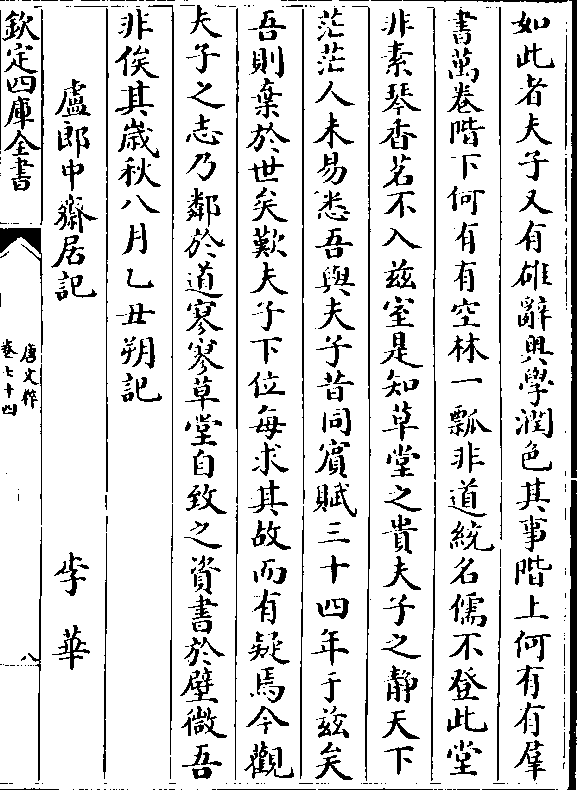 如此者夫子又有雄辭興學潤色其事階上何有有羣
書萬卷階下何有有空林一瓢非道統名儒不登此堂
非素琴香茗不入茲室是知草堂之貴夫子之靜天下
茫茫人未易悉吾與夫子昔同賔賦三十四年于茲矣
吾則棄於世矣歎夫子下位每求其故而有疑焉今觀
夫子之志乃鄰於道寥寥草堂自致之資書於壁微吾
非俟其歲秋八月乙丑朔記
盧郎中齋居記 李華
欽定四庫全書
唐文粹
卷七十四
八